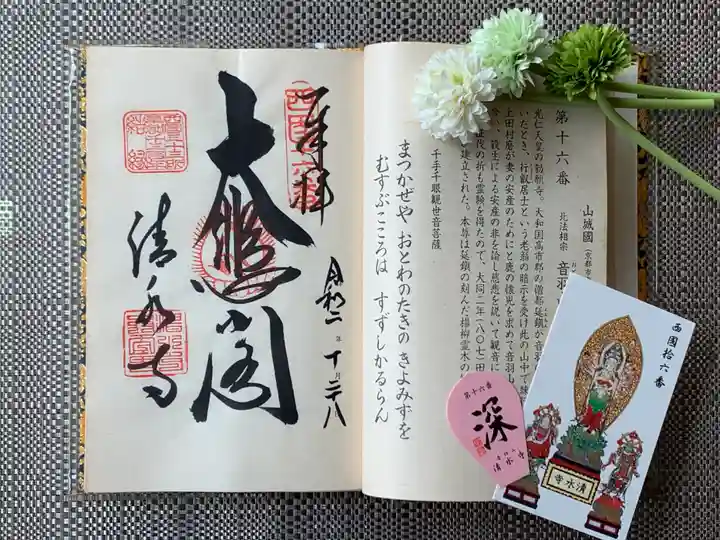 奉拝
大悲閣
令和二年十月二十八
清水寺
西国十六番
第十六番
山城國
北法相宗
音羽
光仁天皇の勅願寺。大和国高市郡の僧都延鎮が音羽
いたとき、行叡居士という老翁の暗示を受け此の山中で
上田村麿が妻の安産のためにと鹿の懐児を求めて音羽山
会い、殺生による安産の非を諭し慈悲を説いて観音に
征伐の折も霊験を得たので、大同二年(八〇七)田
建立された。本尊は延鎮の刻んだ楊柳霊木の
千手千眼観世音菩薩
まつかぜや おとわのたきの きよみずを
むすぶこころは すずしかるらん
第十六番
深
清水寺
西國拾六番
清水寺